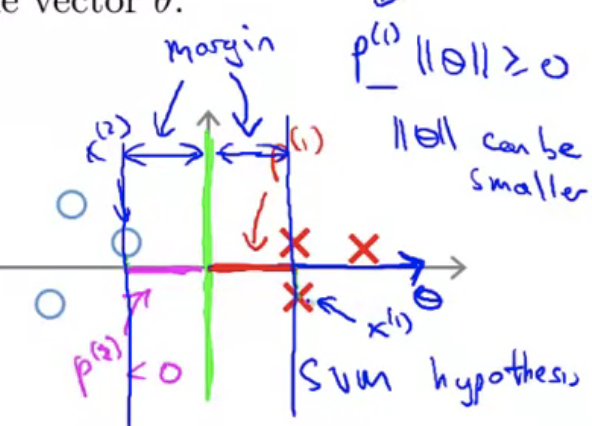 e vector θ.
margin
p⁽¹⁾ ||θ|| ≥ 0
||θ|| can be
smaller
x⁽²⁾
p⁽¹⁾
θ
x⁽¹⁾
p⁽²⁾ < 0
SVM hypothesis